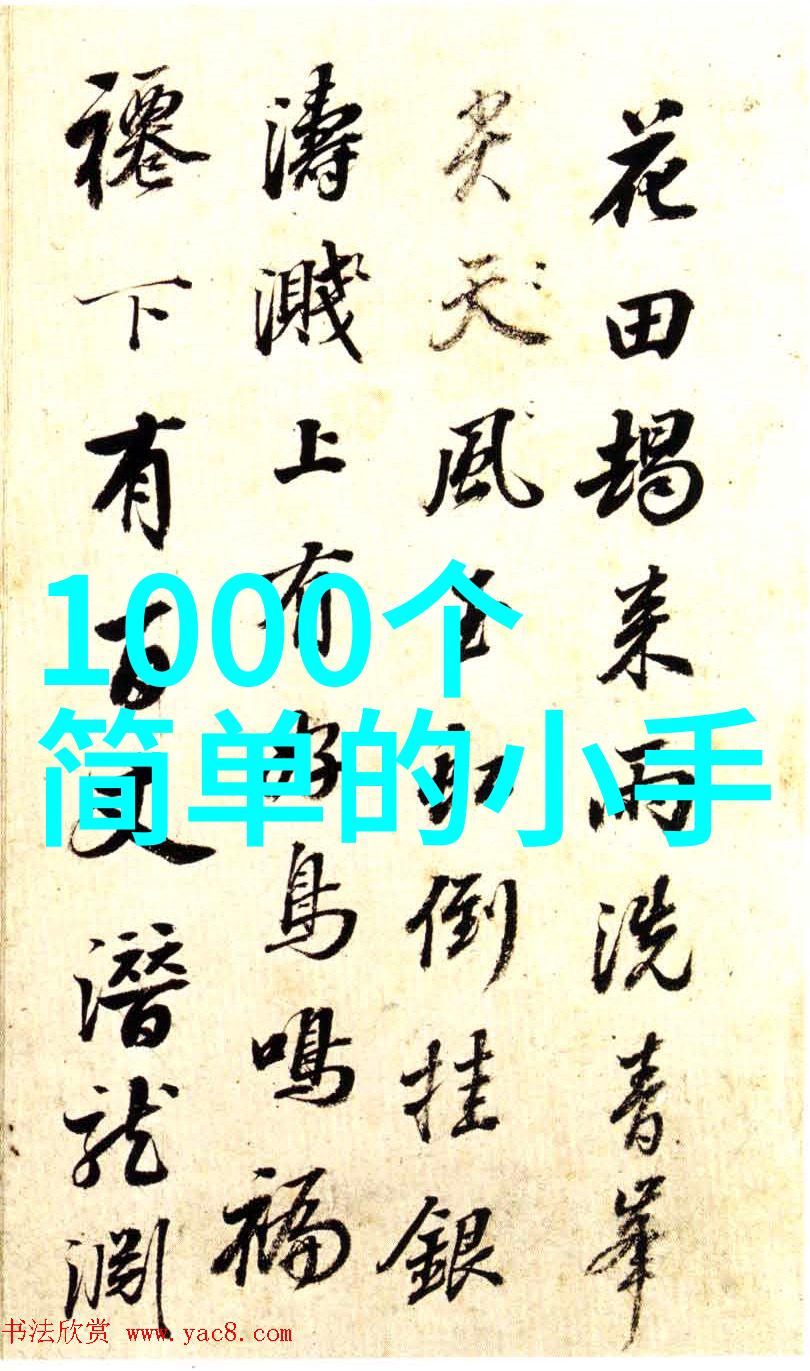 花田朅来雨洗青峯
尖天風玉虹倒挂銀
濤濺上有好鳥鳴福
下有百丈潛龍淵
1000个
简单的小手
书法欣赏 www.yac8.com